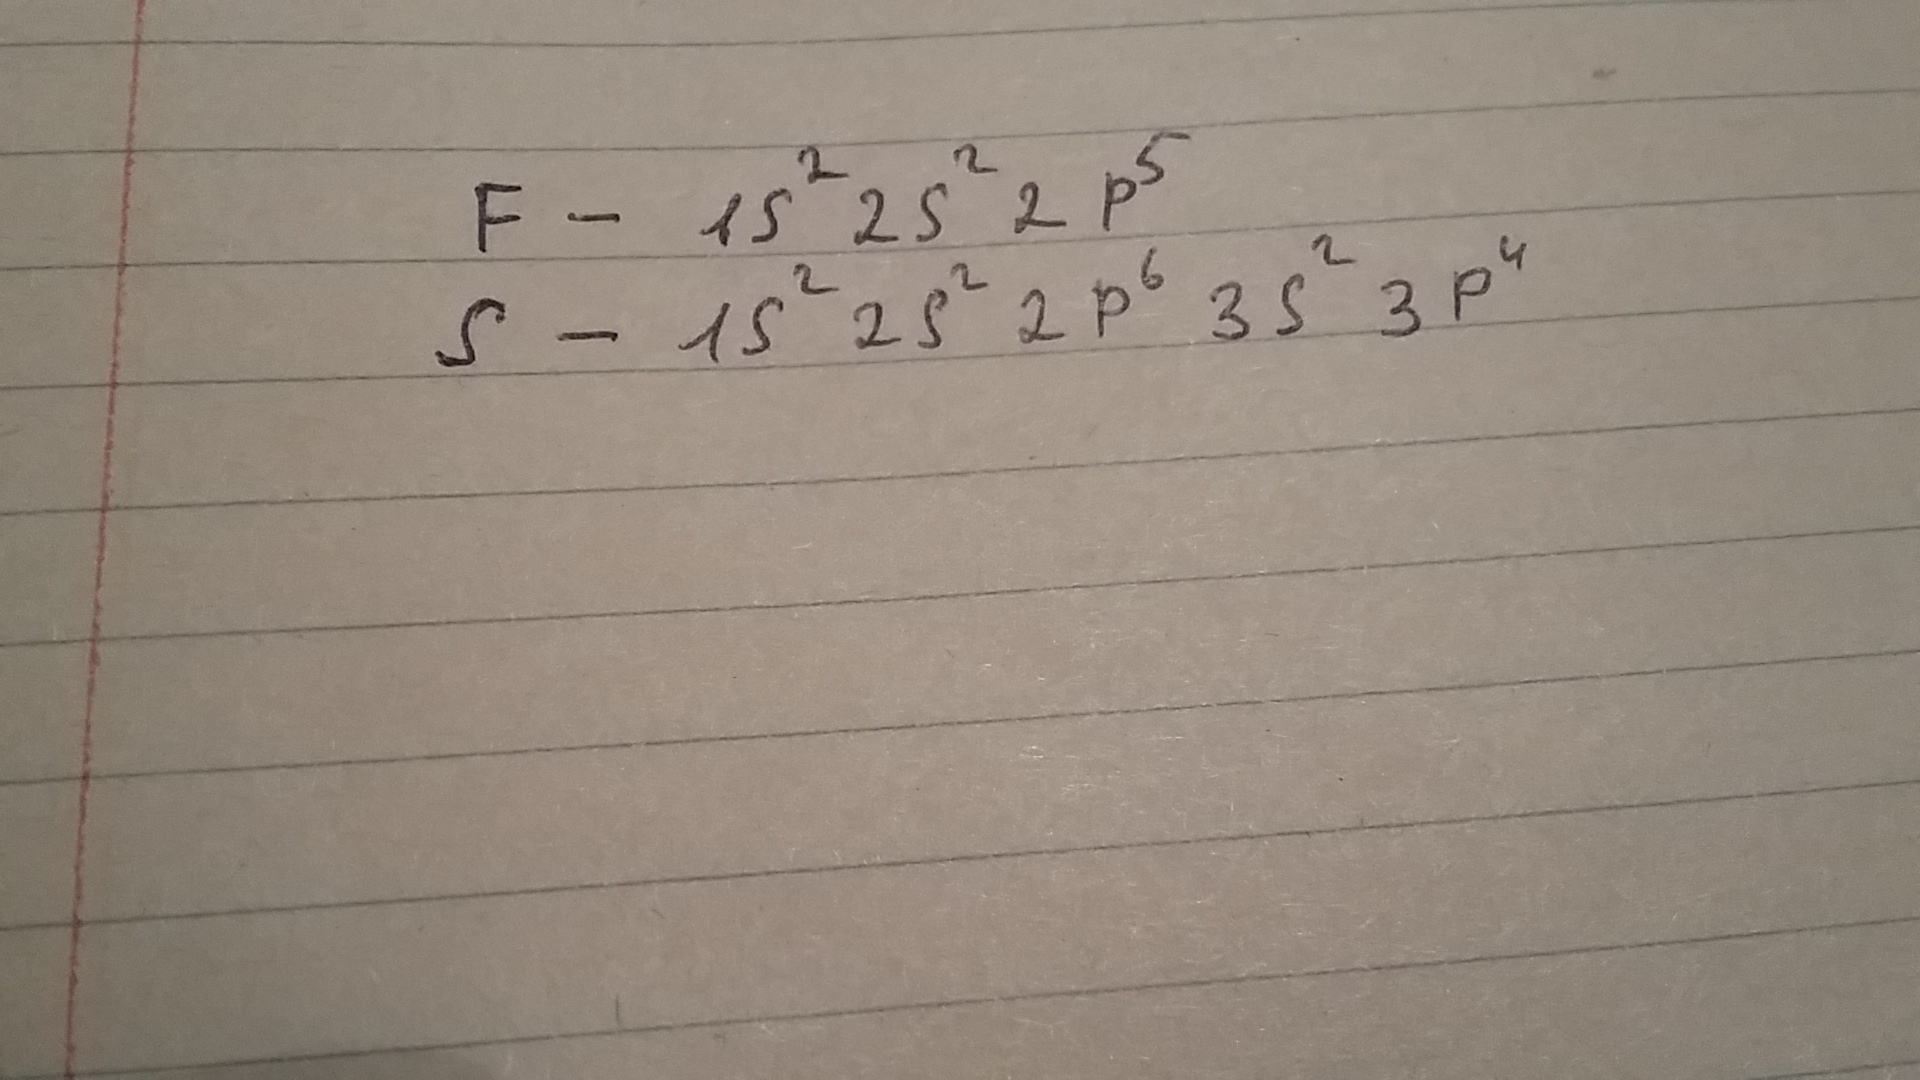 F – 1s² 2s² 2p⁵
S – 1s² 2s² 2p⁶ 3s² 3p⁴